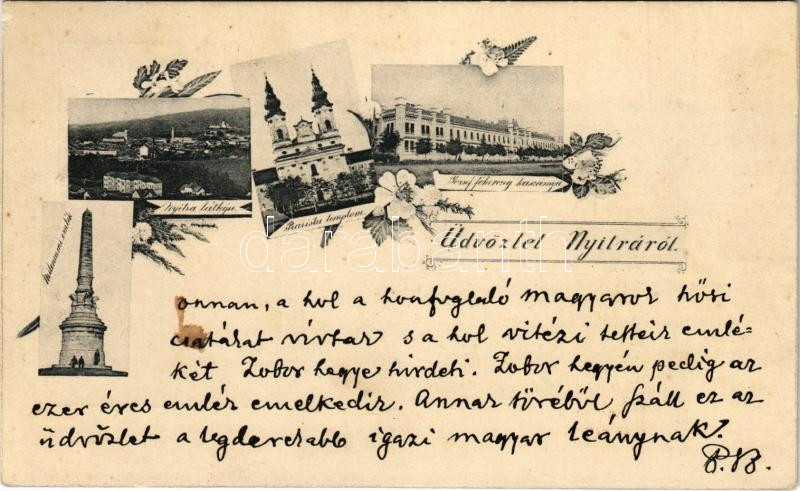 Nyitra látképe.
Piarista templom.
József főherczeg kaszárnya
Milleniumi emlék
Üdvözlet Nyitráról.
darabanth
onnan, a hol a honfogláló magyarok hősi
csatárat vívtak s a hol vitézi tetteik emlé-
két Zobor hegye hirdeti. Zobor hegyén pedig az
ezer éves emlék emelkedik. Annak tövéből száll ez az
üdvözlet a legdercsebb igazi magyar leánynak.
P.B.